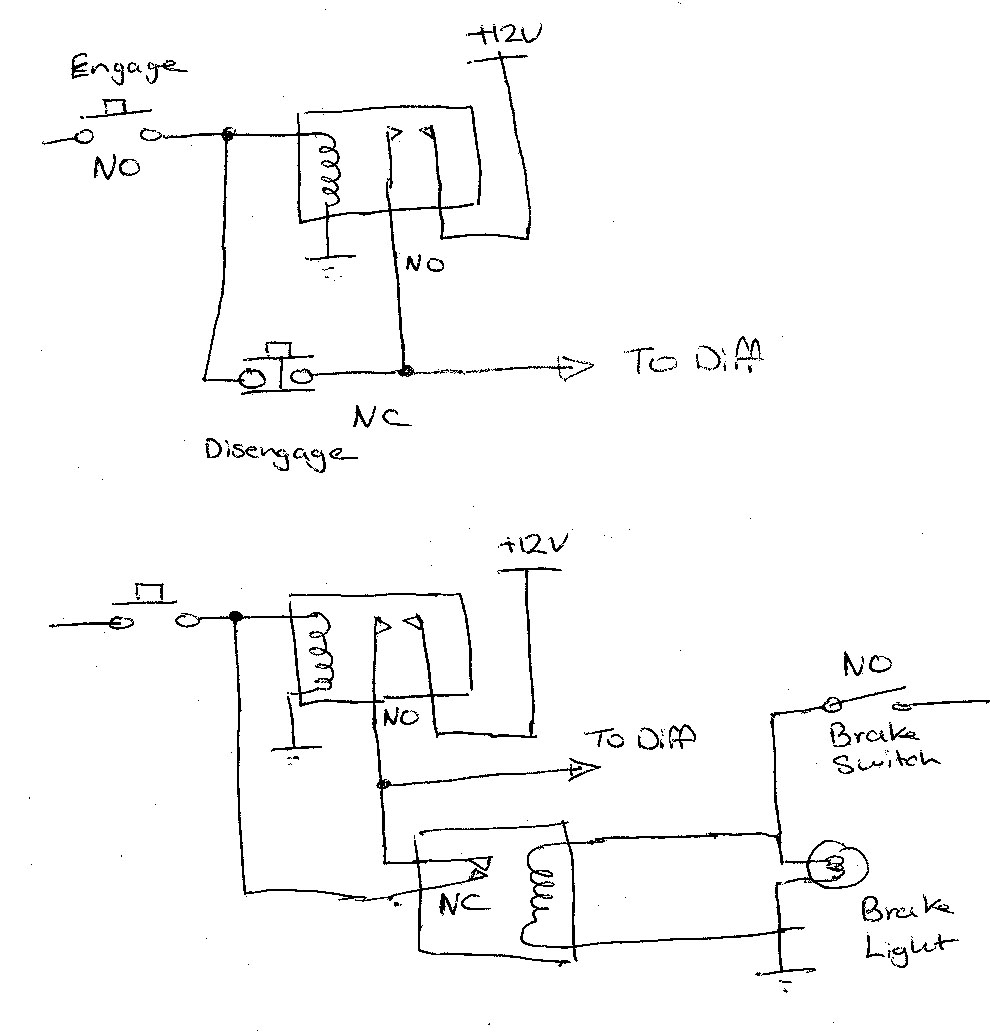 +12V
Engage
NO
NO
To Diff
NC
Disengage
+12V
NO
NO
To Diff
Brake
Switch
NC
Brake
Light